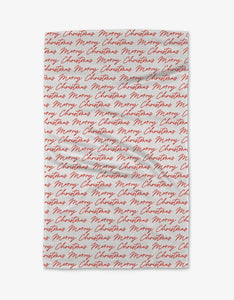 Merry Christmas Merry Christmas
Christmas Merry Christmas Merry
Merry Christmas Merry Christmas
Christmas Merry Christmas Merry
Merry Christmas Merry Christmas
Christmas Merry Christmas Merry
Merry Christmas Merry Christmas
Christmas Merry Christmas Merry
Merry Christmas Merry Christmas
Christmas Merry Christmas Merry
Merry Christmas Merry Christmas
Christmas Merry Christmas Merry
Merry Christmas Merry Christmas
Christmas Merry Christmas Merry
Merry Christmas Merry Christmas
Christmas Merry Christmas Merry
Merry Christmas Merry Christmas
Christmas Merry Christmas Merry
Merry Christmas Merry Christmas
Christmas Merry Christmas Merry
Merry Christmas Merry Christmas